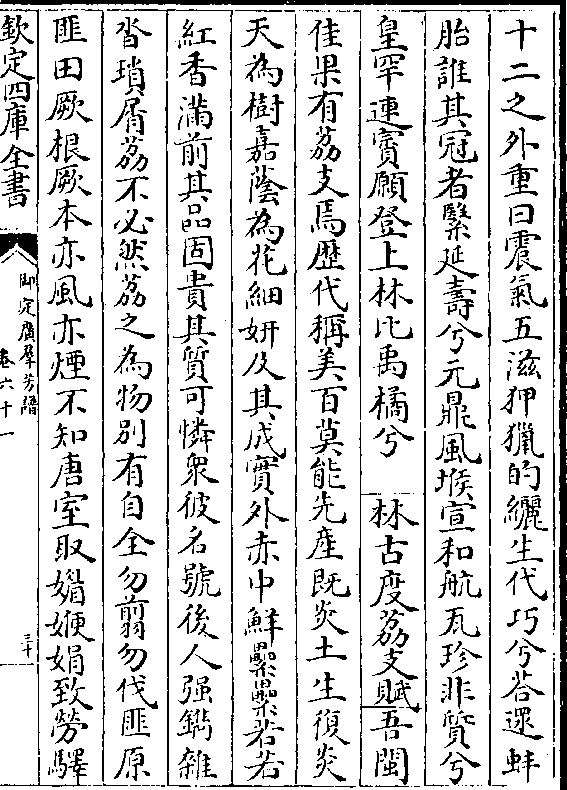 十二之外重曰震氣五滋狎獵的纚生代巧兮苔還蚌
胎誰其冠者繄延壽兮元鼎風堠宣和航瓦珍非質兮
皇罕連寳願登上林比禹橘兮　林古度荔支賦吾閩
佳果有荔支焉歴代稱美百莫能先產既炎土生復炎
天為樹嘉蔭為花細妍及其成實外赤中鮮纍纍若若
紅香滿前其品固貴其質可憐衆彼名號後人强鐫雜
沓瑣屑荔不必然荔之為物别有自全勿翦勿伐匪原
匪田厥根厥本亦風亦煙不知唐室取媚㛹娟致勞驛
欽定四庫全書
御定廣羣芳譜
卷六十一
三十